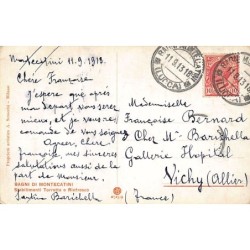 Montecatini 11.9.1913.
Chère Françoise
J'espère que après
mon départ vous serez
mieux et, je vous re-
comande de vous soigner.
Agréez, chère
françoise, mes sincères
salutations aussi de la
part de Monsieur.
BAGNI DI MONTECATINI
Stabilimenti Torretta e Rinfresco
Santina Barichella
11.9.13
(LUCCA)
Mademoiselle
Françoise Bernard
Chez Mr Barichella
Gallerie Hopital
Vichy (Allier)
(France)